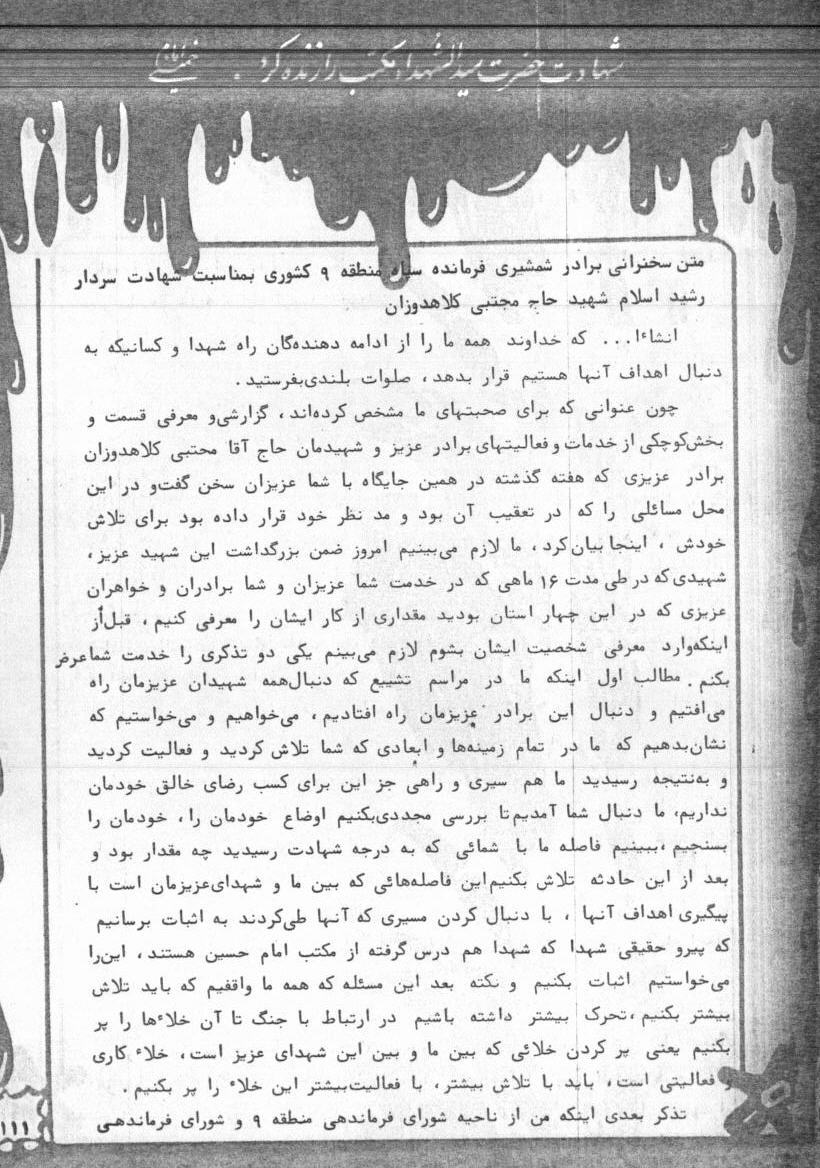 شهادت حضرت سیدالشهداء مکتب را زنده کرد .
متن سخنرانی برادر شمشیری فرمانده سپاه منطقه ۹ کشوری بمناسبت شهادت سردار
رشید اسلام شهید حاج مجتبی کلاهدوزان
انشاءا... که خداوند همه ما را از ادامه دهنده‌گان راه شهدا و کسانیکه به
دنبال اهداف آنها هستیم قرار بدهد، صلوات بلندی‌بفرستید.
چون عنوانی که برای صحبتهای ما مشخص کرده‌اند، گزارشی‌و معرفی قسمت و
بخش‌کوچکی از خدمات و فعالیتهای برادر عزیز و شهیدمان حاج آقا محتبی کلاهدوزان
برادر عزیزی که هفته گذشته در همین جایگاه با شما عزیزان سخن گفت‌و در این
محل مسائلی را که در تعقیب آن بود و مد نظر خود قرار داده بود برای تلاش
خودش ، اینجا بیان‌کرد، ما لازم می‌بینیم امروز ضمن بزرگداشت این شهید عزیز،
شهیدی‌که در طی مدت ۱۶ ماهی که در خدمت شما عزیزان و شما برادران و خواهران
عزیزی که در این چهار استان بودید مقداری از کار ایشان را معرفی کنیم ، قبل‌از
اینکه‌وارد معرفی شخصیت ایشان بشوم لازم می‌بینم یکی دو تذکری را خدمت شماعرض
بکنم . مطالب اول اینکه ما در مراسم تشییع که دنبال‌همه شهیدان عزیزمان راه
می‌افتیم و دنبال این برادر عزیزمان راه افتادیم، می‌خواهیم و می‌خواستیم که
نشان‌بدهیم که ما در تمام زمینه‌ها و ابعادی که شما تلاش کردید و فعالیت کردید
و به‌نتیجه رسیدید ما هم سیری و راهی جز این برای کسب رضای خالق خودمان
نداریم، ما دنبال شما آمدیم‌تا بررسی مجددی‌بکنیم اوضاع خودمان را، خودمان را
بسنجیم ،ببینیم فاصله ما با شمائی که به درجه شهادت رسیدید چه مقدار بود و
بعد از این حادثه تلاش بکنیم‌این فاصله‌هائی که بین ما و شهدای‌عزیزمان است با
پیگیری اهداف آنها ، با دنبال کردن مسیری که آنها طی‌کردند به اثبات برسانیم
که پیرو حقیقی شهدا که شهدا هم درس گرفته از مکتب امام حسین هستند، این‌را
می‌خواستیم اثبات بکنیم و نکته بعد این مسئله که همه ما واقفیم که باید تلاش
بیشتر بکنیم ،تحرک بیشتر داشته باشیم در ارتباط با جنگ تا آن خلاءها را پر
بکنیم یعنی پر کردن خلائی که بین ما و بین این شهدای عزیز است، خلاء کاری
و فعالیتی است، باید با تلاش بیشتر، با فعالیت‌بیشتر این خلاء را پر بکنیم .
تذکر بعدی اینکه من از ناحیه شورای فرماندهی منطقه ۹ و شورای فرماندهی
۱۱۱